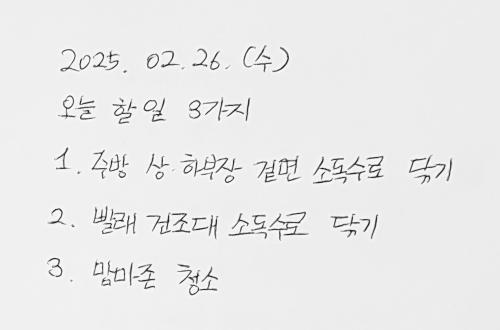 2025. 02. 26. (수)
오늘 할 일 3가지
1. 주방 상·하부장 겉면 소독수로 닦기
2. 빨래 건조대 소독수로 닦기
3. 맘마존 청소